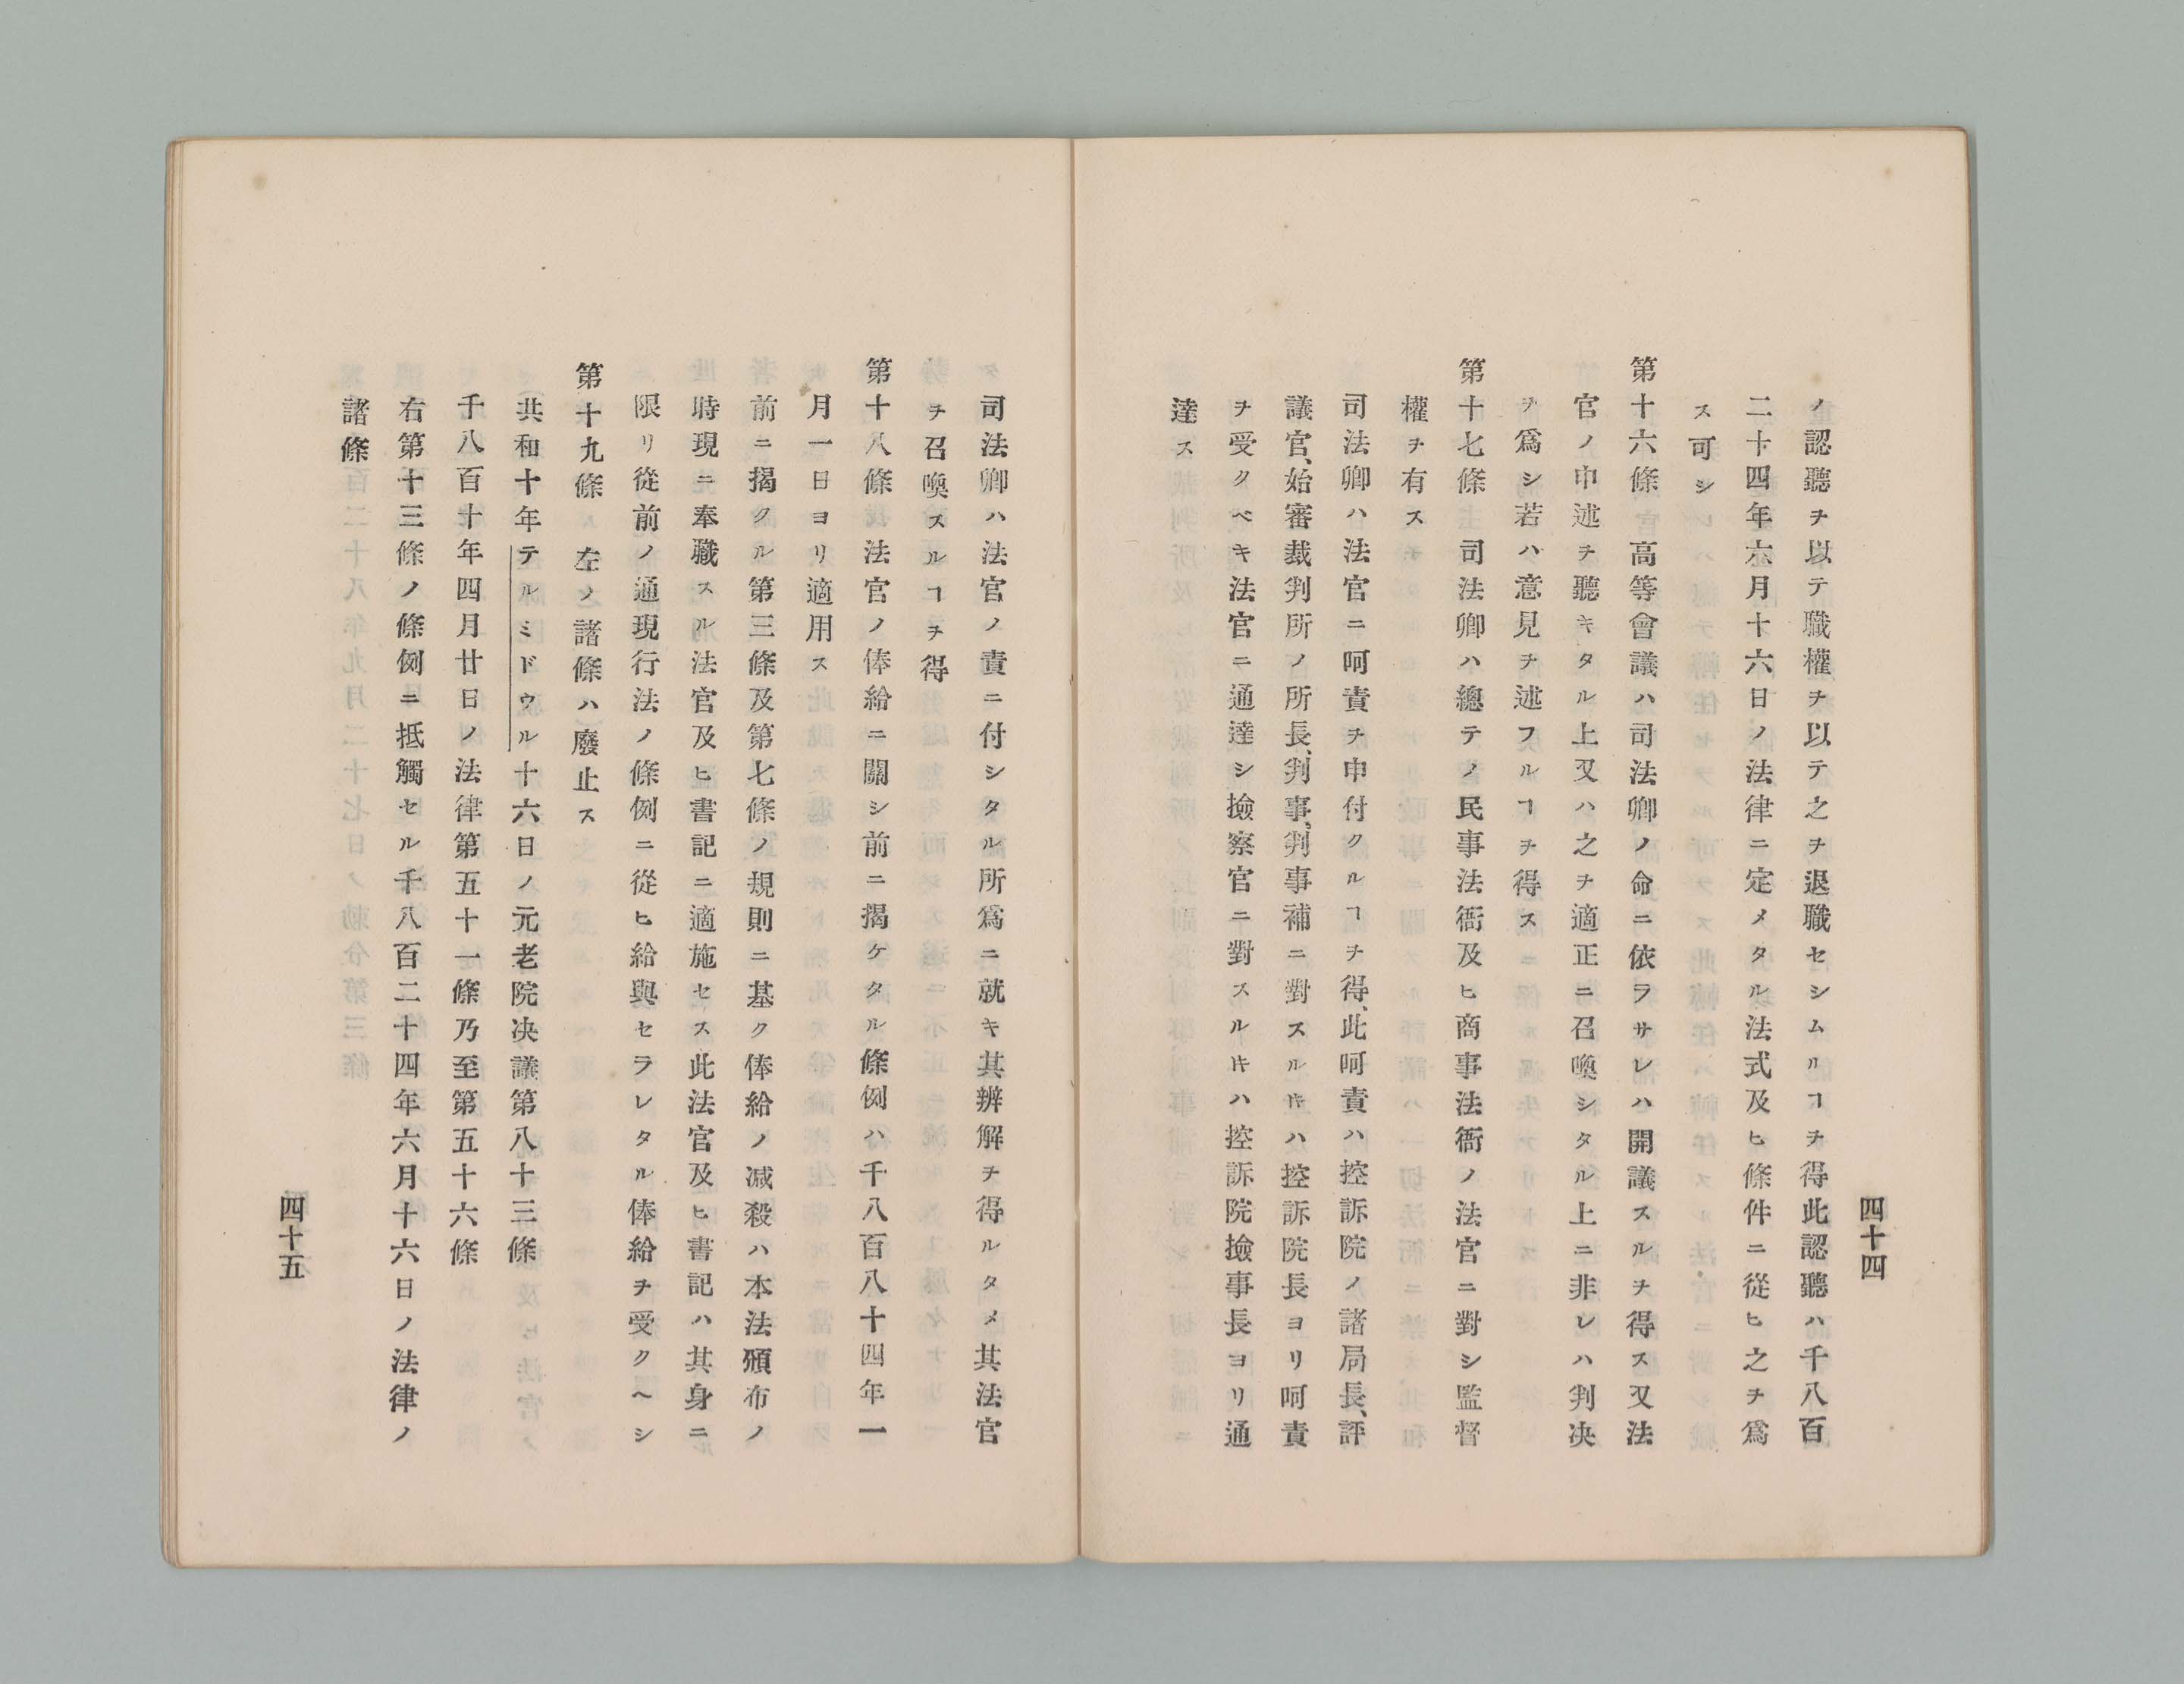 四十四
ノ認聽ヲ以テ職權ヲ以テ之ヲ退職セシムルヿヲ得此認聽ハ千八百
二十四年六月十六日ノ法律ニ定メタル法式及ヒ條件ニ從ヒ之ヲ爲
ス可シ
第十六條　高等會議ハ司法卿ノ命ニ依ラサレハ開議スルヲ得ス又法
官ノ申述ヲ聽キタル上又ハ之ヲ適正ニ召喚シタル上ニ非レハ判决
ヲ爲シ若ハ意見ヲ述フルヿヲ得ス
第十七條　司法卿ハ總テノ民事法衙及ヒ商事法衙ノ法官ニ對シ監督
權ヲ有ス
司法卿ハ法官ニ呵責ヲ申付クルヿヲ得、此呵責ハ控訴院ノ諸局長、評
議官、始審裁判所ノ所長、判事、判事補ニ對スルㇳキハ控訴院長ヨリ呵責
ヲ受クベキ法官ニ通達シ撿察官ニ對スルㇳキハ控訴院撿事長ヨリ通
達ス
司法卿ハ法官ノ責ニ付シタル所爲ニ就キ其辨解ヲ得ルタメ其法官
ヲ召喚スルヿヲ得
第十八條　法官ノ俸給ニ關シ前ニ揭ケタル條例ハ千八百八十四年一
月一日ヨリ適用ス
前ニ揭クル第三條及第七條ノ規則ニ基ク俸給ノ减殺ハ本法頒布ノ
時現ニ奉職スル法官及ヒ書記ニ適施セス此法官及ヒ書記ハ其身ニ
限リ從前ノ通現行法ノ條例ニ從ヒ給與セラレタル俸給ヲ受クヘシ
第十九條　左ノ諸條ハ廢止ス
共和十年テルミドウル十六日ノ元老院决議第八十三條
千八百十年四月廿日ノ法律第五十一條乃至第五十六條
右第十三條ノ條例ニ抵觸セル千八百二十四年六月十六日ノ法律ノ
諸條
四十五